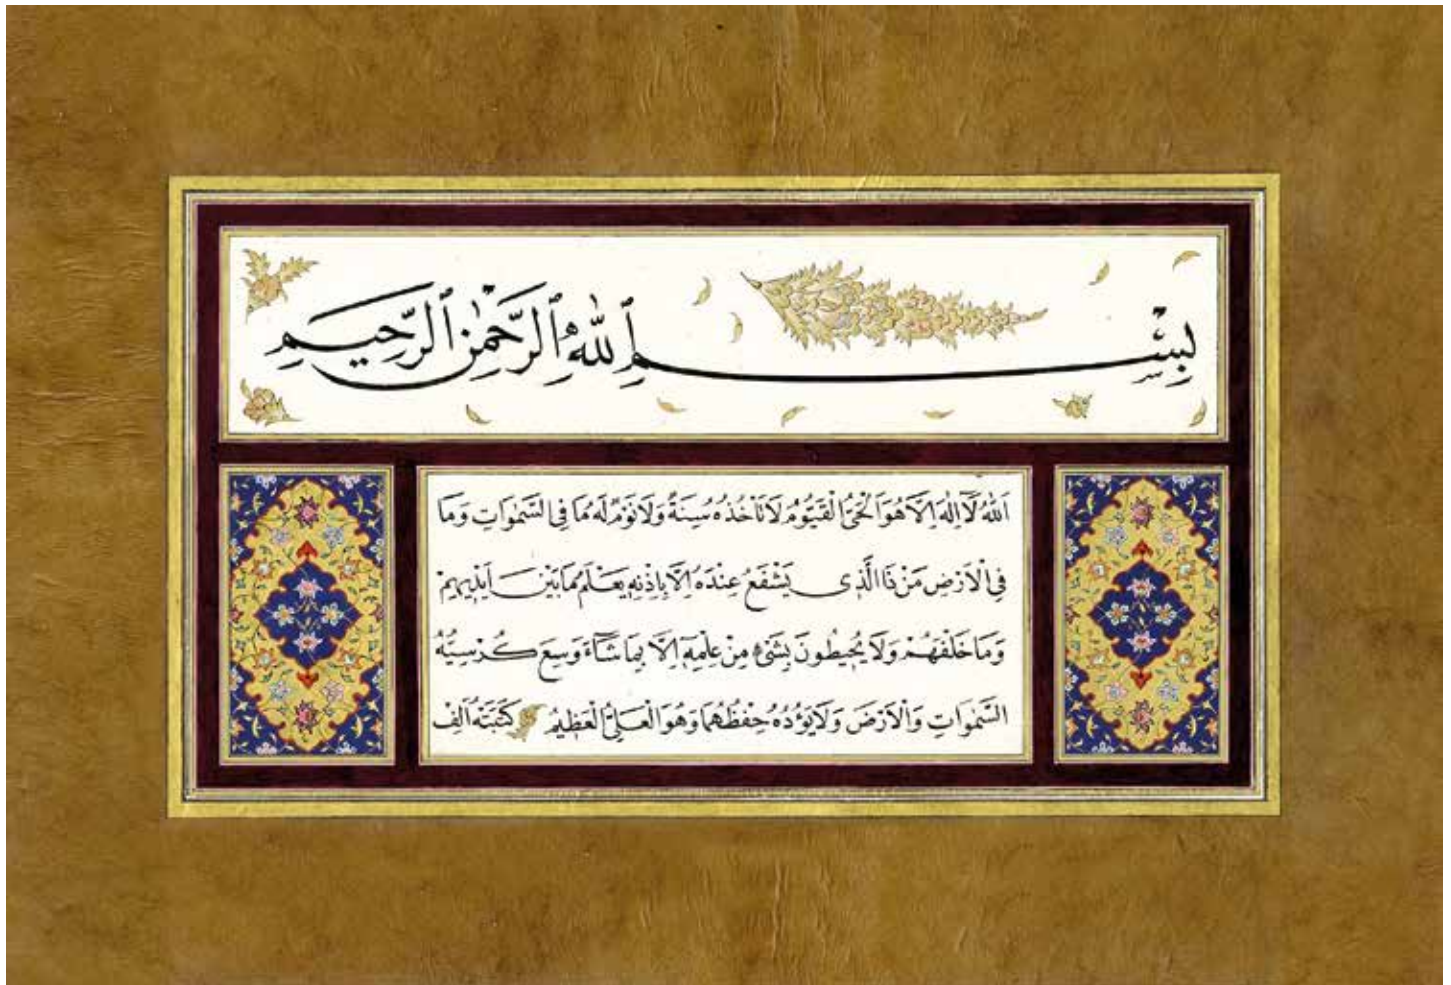 بِسْمِ ٱللّٰهِ ٱلرَّحْمٰنِ ٱلرَّحِيمِ
اَللّٰهُ لَٓا اِلٰهَ اِلَّا هُوَ اَلْحَىُّ الْقَيُّومُ لَا تَاْخُذُهُ سِنَةٌ وَلَا نَوْمٌ لَهُ مَا فِى السَّمٰوَاتِ وَمَا
فِى الْاَرْضِ مَنْ ذَا الَّذِى يَشْفَعُ عِنْدَهُ اِلَّا بِاِذْنِهٖ يَعْلَمُ مَا بَيْنَ اَيْدِيهِمْ
وَمَا خَلْفَهُمْ وَلَا يُحِيطُونَ بِشَىْءٍ مِنْ عِلْمِهٖٓ اِلَّا بِمَا شَٓاءَ وَسِعَ كُرْسِيُّهُ
السَّمٰوَاتِ وَالْاَرْضَ وَلَا يَؤُدُهُ حِفْظُهُمَا وَهُوَ الْعَلِىُّ الْعَظِيمُ كَتَبَتْهُ اَلِفْ